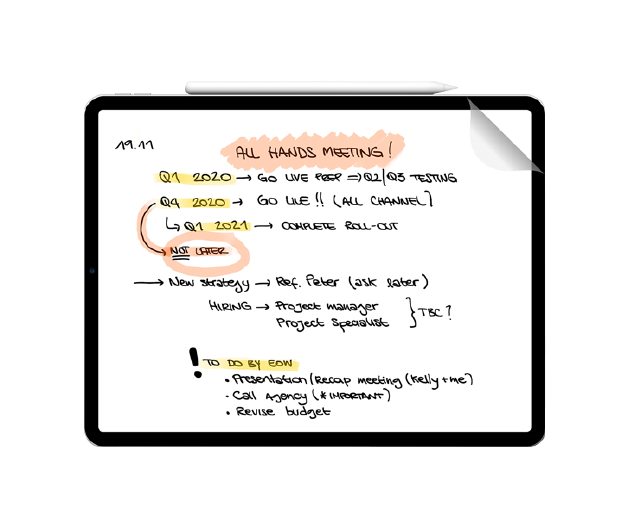 19.11
ALL HANDS MEETING!
Q1 2020 → GO LIVE PREP ⇒ Q2/Q3 TESTING
Q4 2020 → GO LIVE!! (ALL CHANNEL]
↳ Q1 2021 → COMPLETE ROLL-OUT
NOT LATER
→ New strategy → Ref. Peter (ask later)
HIRING → Project manager
Project Specialist } TBC?
! TO DO BY EOW
• Presentation/Recap meeting (Kelly + me)
- Call Agency (*IMPORTANT)
• Revise budget